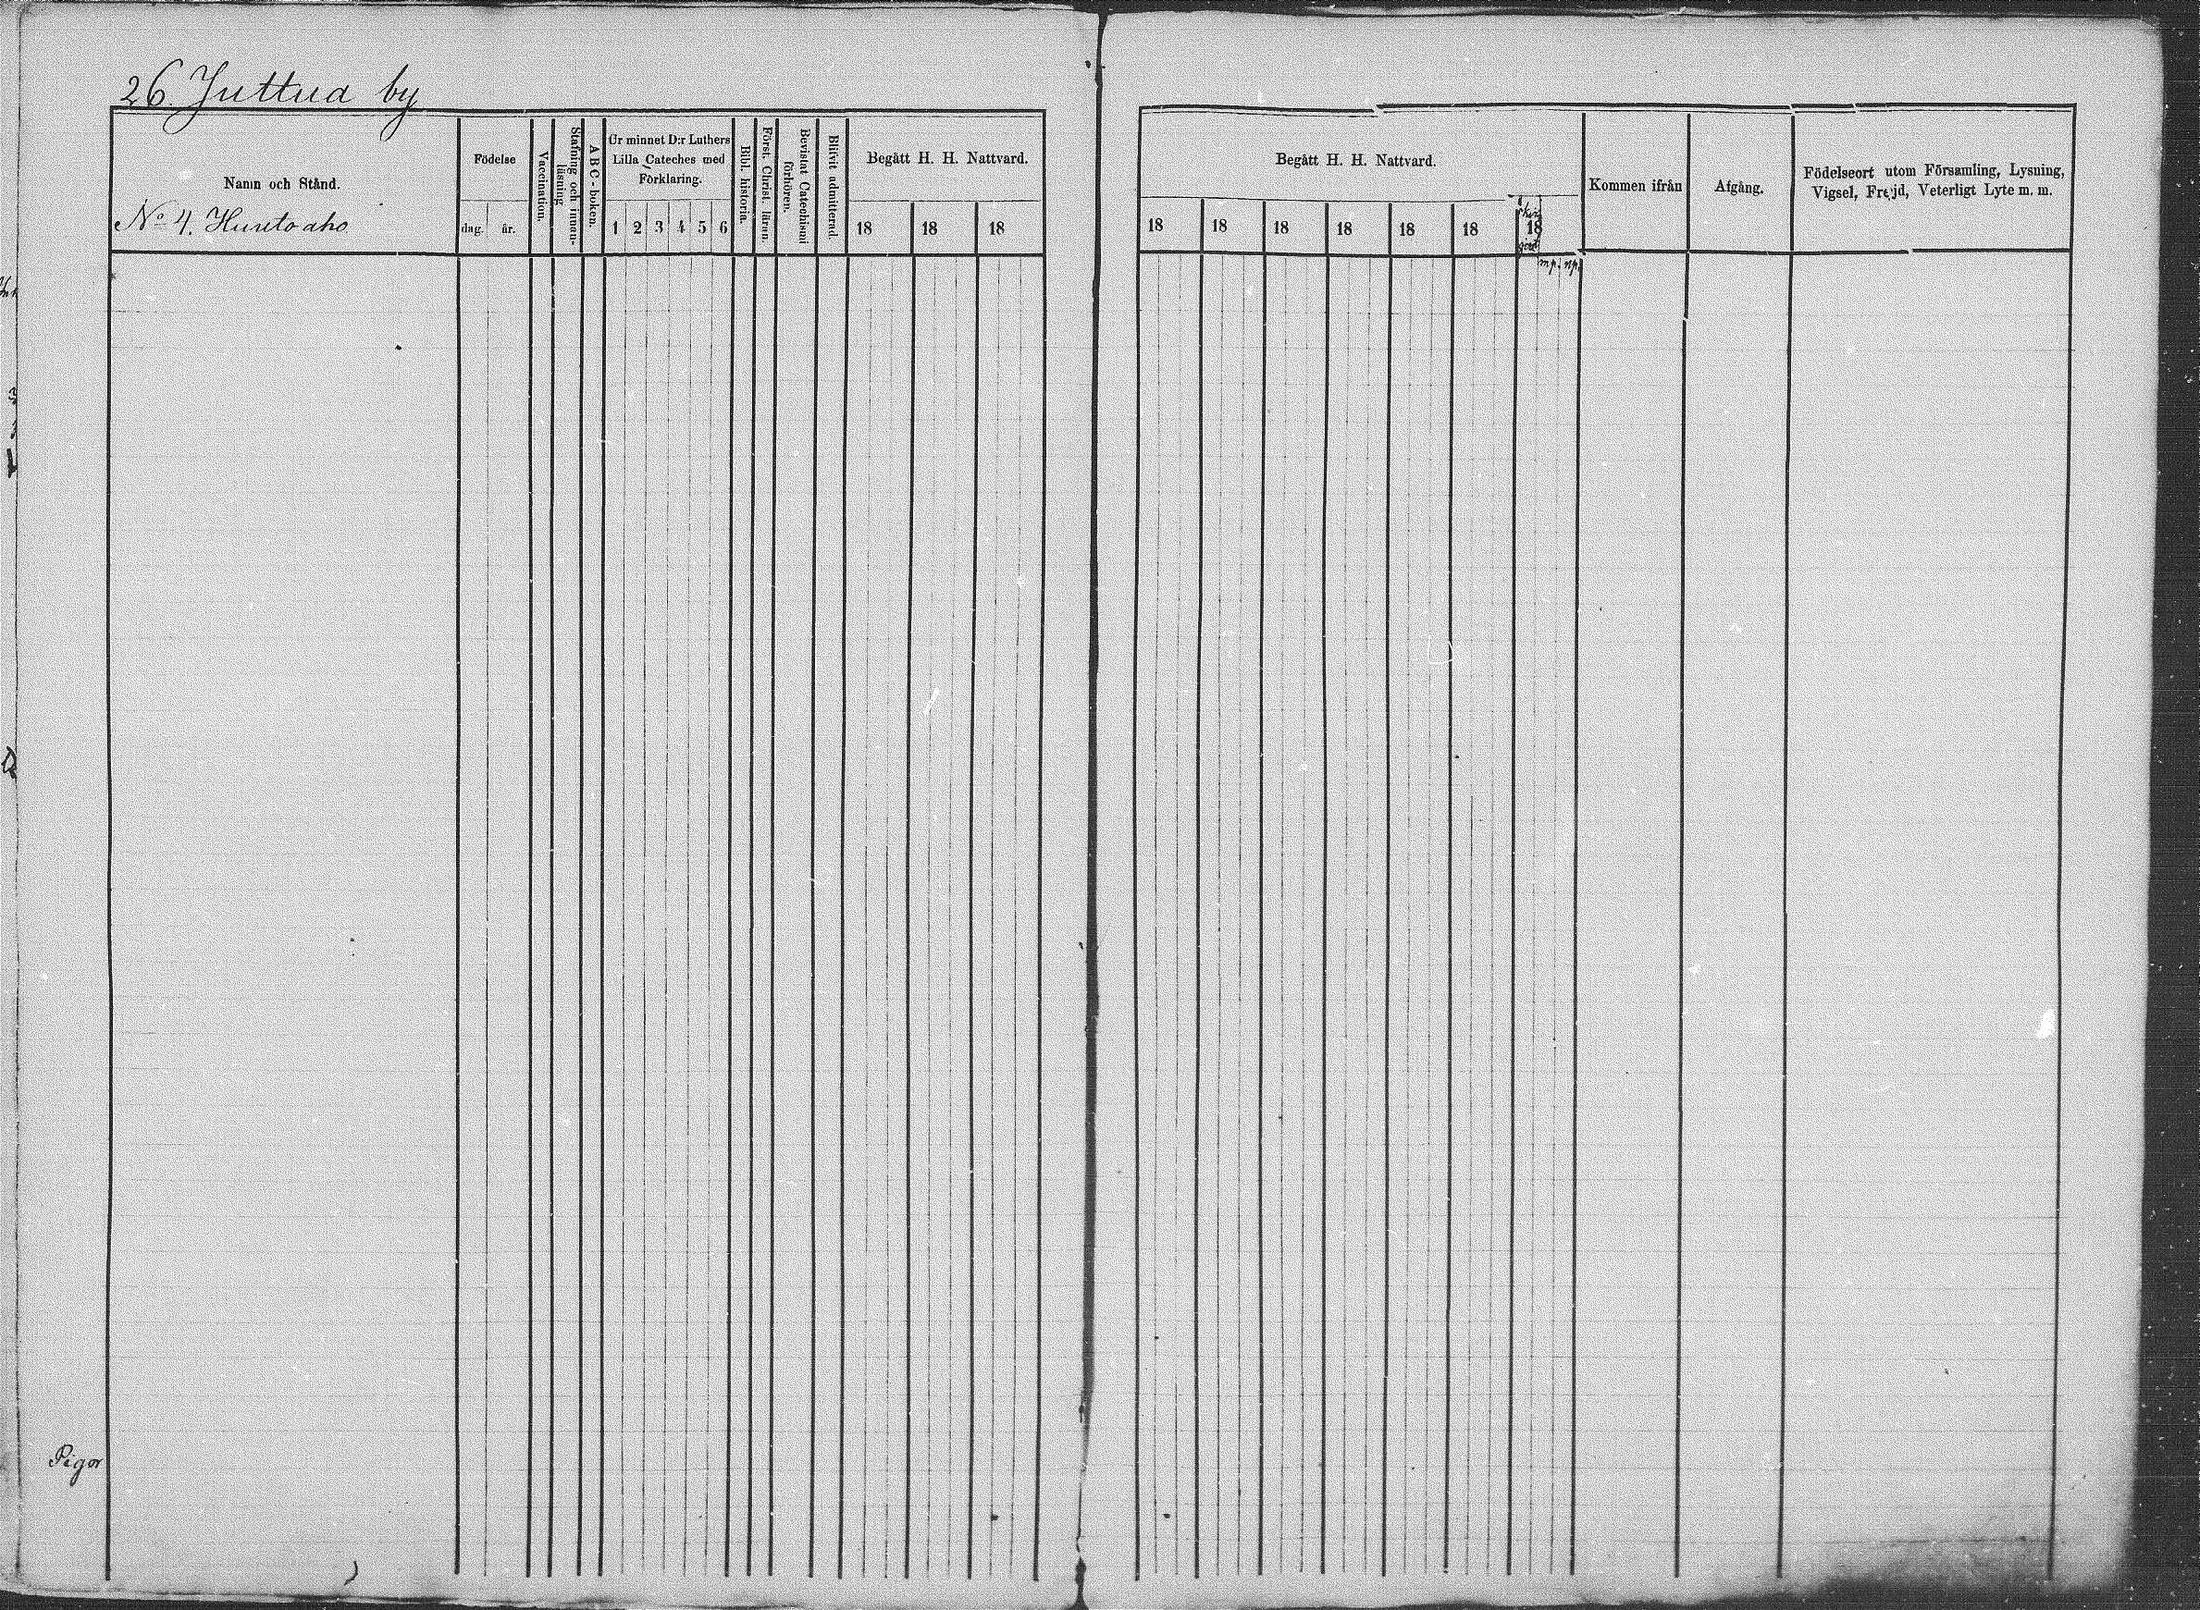 26. Juttua by
Namn och Stånd.
No 4. Huuto aho
Födelse
dag.
år.
Vaccination.
Stafning och innan-
läsning
A B C - boken.
Ur minnet D:r Luthers
Lilla Cateches med
Förklaring.
1 2 3 4 5 6
Bibl. historia.
Först. Christ. läran.
Bevistat Catechismi
förhören.
Blifvit admitterad.
Begått H. H. Nattvard.
18 18 18
Begått H. H. Nattvard.
18 18 18 18 18 18 18
mp. np.
Kommen ifrån
Afgång.
Födelseort utom Församling, Lysning,
Vigsel, Frejd, Veterligt Lyte m. m.
Pigor